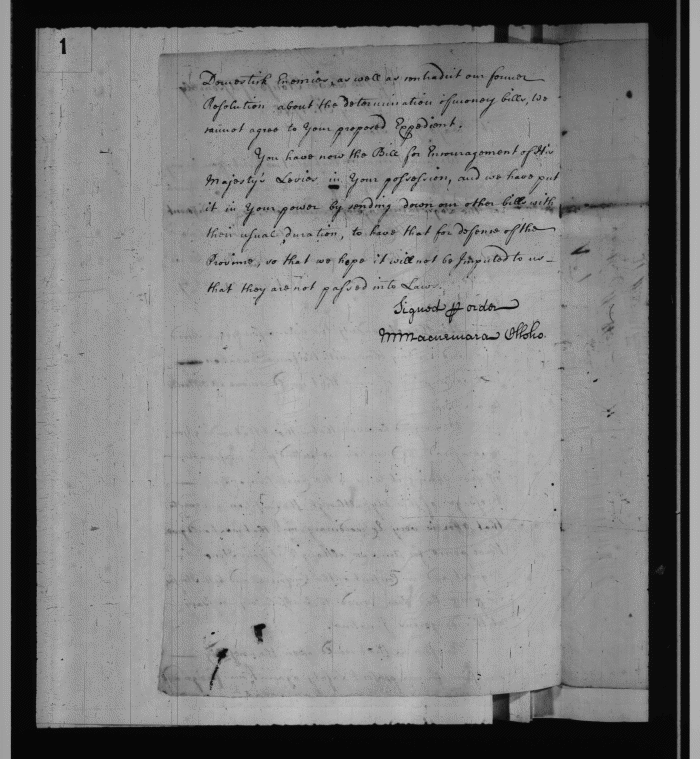 1
Domestick Enemies, as well as contradict our former
Resolution about the determination of money bills, We
cannot agree to Your proposed Expedient.
You have now the Bill for Encouragement of His
Majesty's Levies in Your possession, and we have put
it in Your power by sending down our other bills with
their usual duration, to have that for defense of the
Province, so that we hope it will not be Imputed to us
that they are not passed into Laws.
Signed p order
MMacnemara